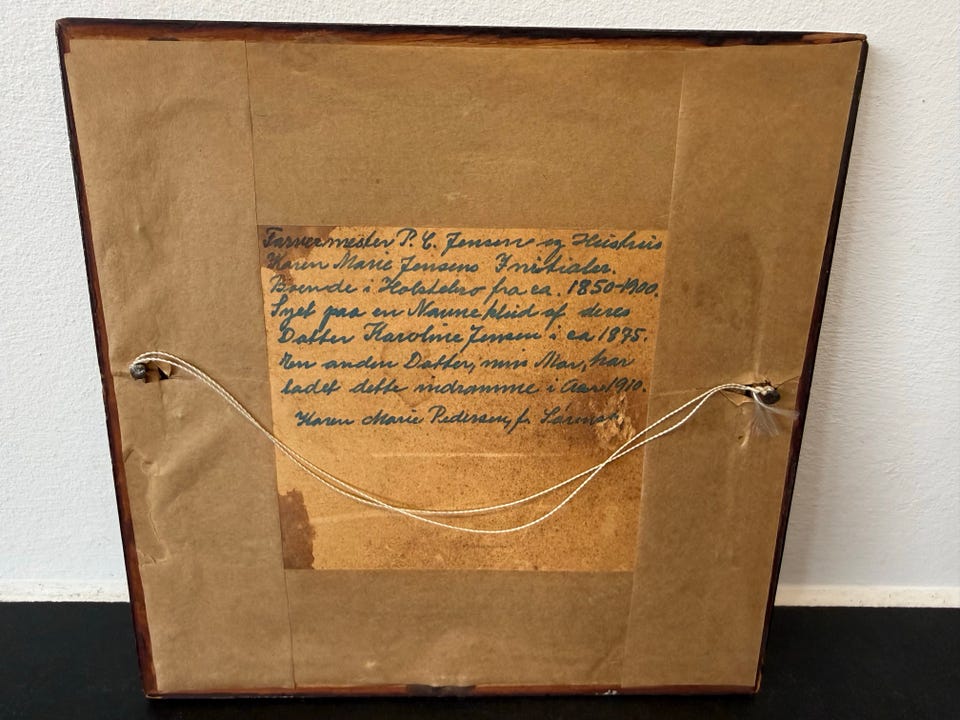 Farvermester P. C. Jensen og Hustrus
Karen Marie Jensens Initialer.
Boende i Holstebro fra ca. 1850-1900.
Syet paa en Navneklud af deres
Datter Karoline Jensen i ca 1875.
En anden Datter, min Mor, har
ladet dette indramme i Aaret 1910.
Karen Marie Pedersen, f. Sørensen